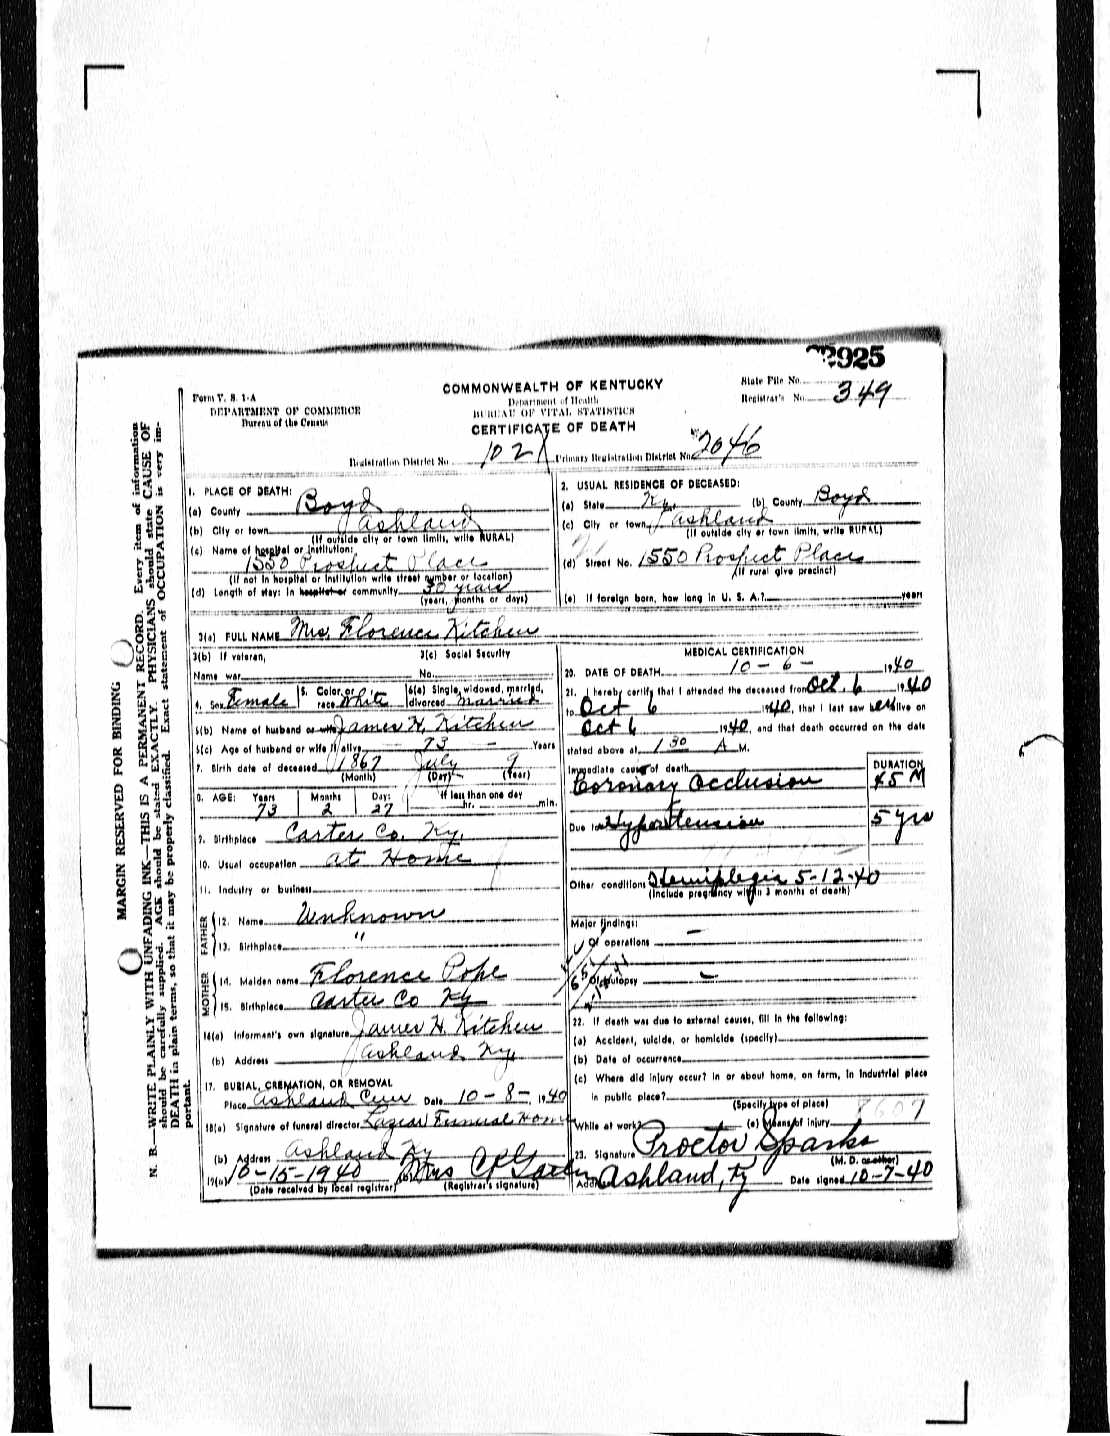 925
COMMONWEALTH OF KENTUCKY
Department of Health
BUREAU OF VITAL STATISTICS
CERTIFICATE OF DEATH
Form V. S. 1-A
DEPARTMENT OF COMMERCE
Bureau of the Census
State File No.
Registrar's No. 349
Registration District No. 102 Primary Registration District No. 2046
MARGIN RESERVED FOR BINDING
N. B.—WRITE PLAINLY WITH UNFADING INK—THIS IS A PERMANENT RECORD. Every item of information
should be carefully supplied. AGE should be stated EXACTLY. PHYSICIANS should state CAUSE OF
DEATH in plain terms, so that it may be properly classified. Exact statement of OCCUPATION is very im-
portant.
1. PLACE OF DEATH:
(a) County Boyd
(b) City or town Ashland
(If outside city or town limits, write RURAL)
(c) Name of hospital or institution:
1550 Prospect Place
(If not in hospital or institution write street number or location)
(d) Length of stay: In hospital or community 30 years
(years, months or days)
2. USUAL RESIDENCE OF DECEASED:
(a) State Ky. (b) County Boyd
(c) City or town Ashland
(If outside city or town limits, write RURAL)
(d) Street No. 1550 Prospect Place
(If rural give precinct)
(e) If foreign born, how long in U. S. A.? years
3(a) FULL NAME Mrs. Florence Kitchen
3(b) If veteran, 3(c) Social Security
Name war No.
4. Sex Female 5. Color or race White 6(a) Single, widowed, married, divorced Married
6(b) Name of husband or wife James H. Kitchen
6(c) Age of husband or wife if alive 73 Years
7. Birth date of deceased 1867 July 9
(Month) (Day) (Year)
8. AGE: Years Months Days If less than one day
73 2 27 hr. min.
9. Birthplace Carter Co. Ky.
10. Usual occupation at Home
11. Industry or business
FATHER
12. Name Unknown
13. Birthplace "
MOTHER
14. Maiden name Florence Pope
15. Birthplace Carter Co Ky
16(a) Informant's own signature James H. Kitchen
(b) Address Ashland Ky.
17. BURIAL, CREMATION, OR REMOVAL
Place Ashland Cem Date 10-8-, 1940
18(a) Signature of funeral director Lazear Funeral Home
(b) Address Ashland Ky
19(a) 10-15-1940 (b) Mrs
(Date received by local registrar) (Registrar's signature)
MEDICAL CERTIFICATION
20. DATE OF DEATH 10-6- 1940
21. I hereby certify that I attended the deceased from Oct. 6 1940
to Oct 6 1940, that I last saw her alive on
Oct 6 1940, and that death occurred on the date
stated above at 1 30 A M.
Immediate cause of death DURATION
Coronary Occlusion 45 M
Due to Hypertension 5 yrs
Other conditions Hemiplegia 5-12-40
(Include pregnancy within 3 months of death)
Major findings:
Of operations —
Of autopsy —
22. If death was due to external causes, fill in the following:
(a) Accident, suicide, or homicide (specify)
(b) Date of occurrence
(c) Where did injury occur? In or about home, on farm, in industrial place
in public place?
(Specify type of place)
While at work? (e) Means of injury
23. Signature Proctor Sparks
(M. D. or other)
Address Ashland, Ky Date signed 10-7-40